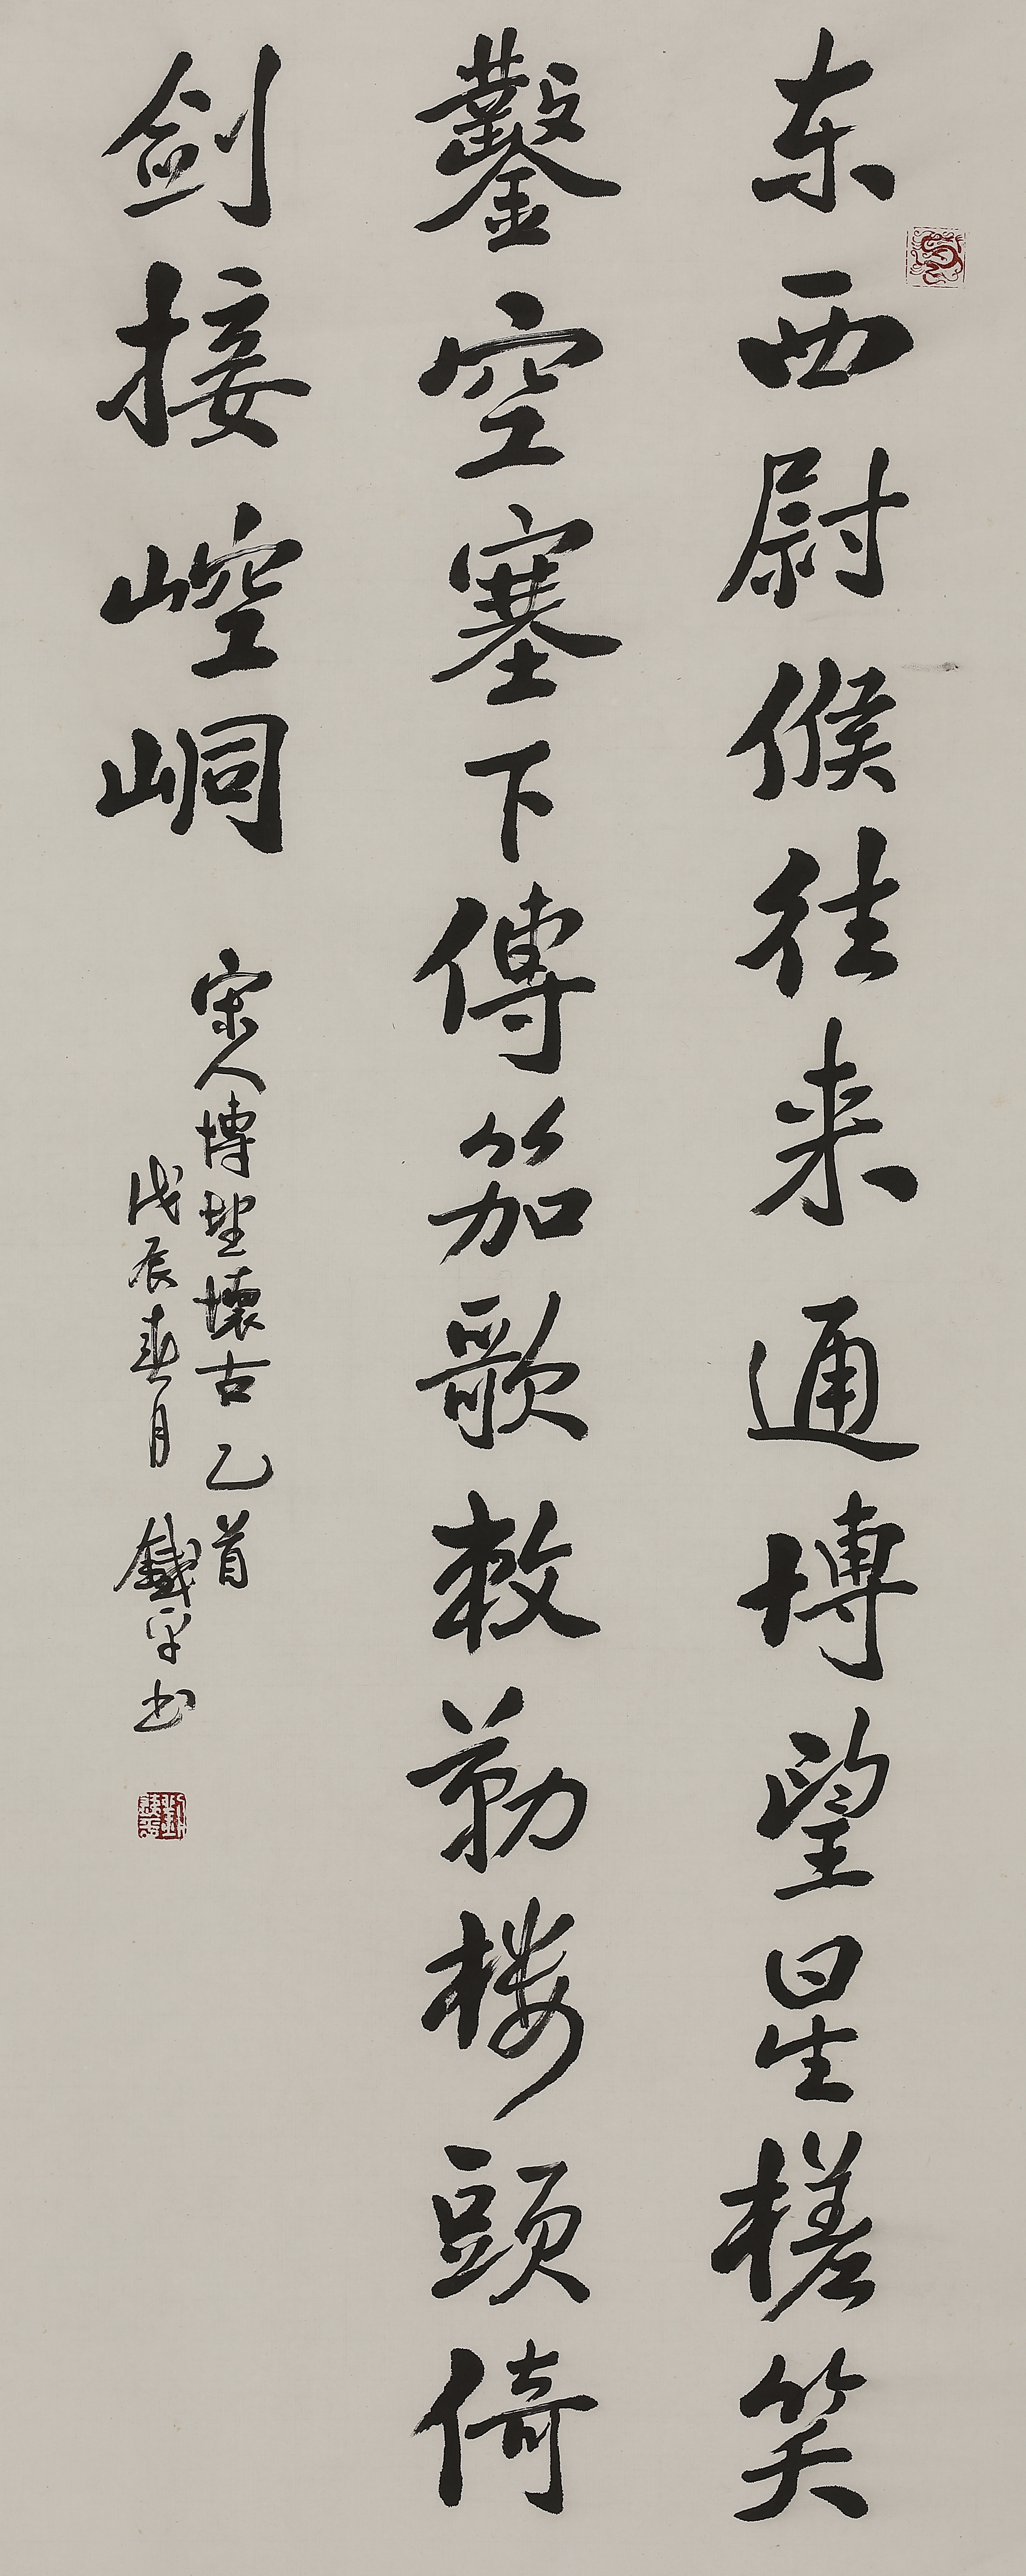 东西尉候往来通博望星槎笑
鑿空塞下傳笳歌敕勒楼頭倚
剑接崆峒
宋人博望懷古乙首
戊辰春月 鐵平书